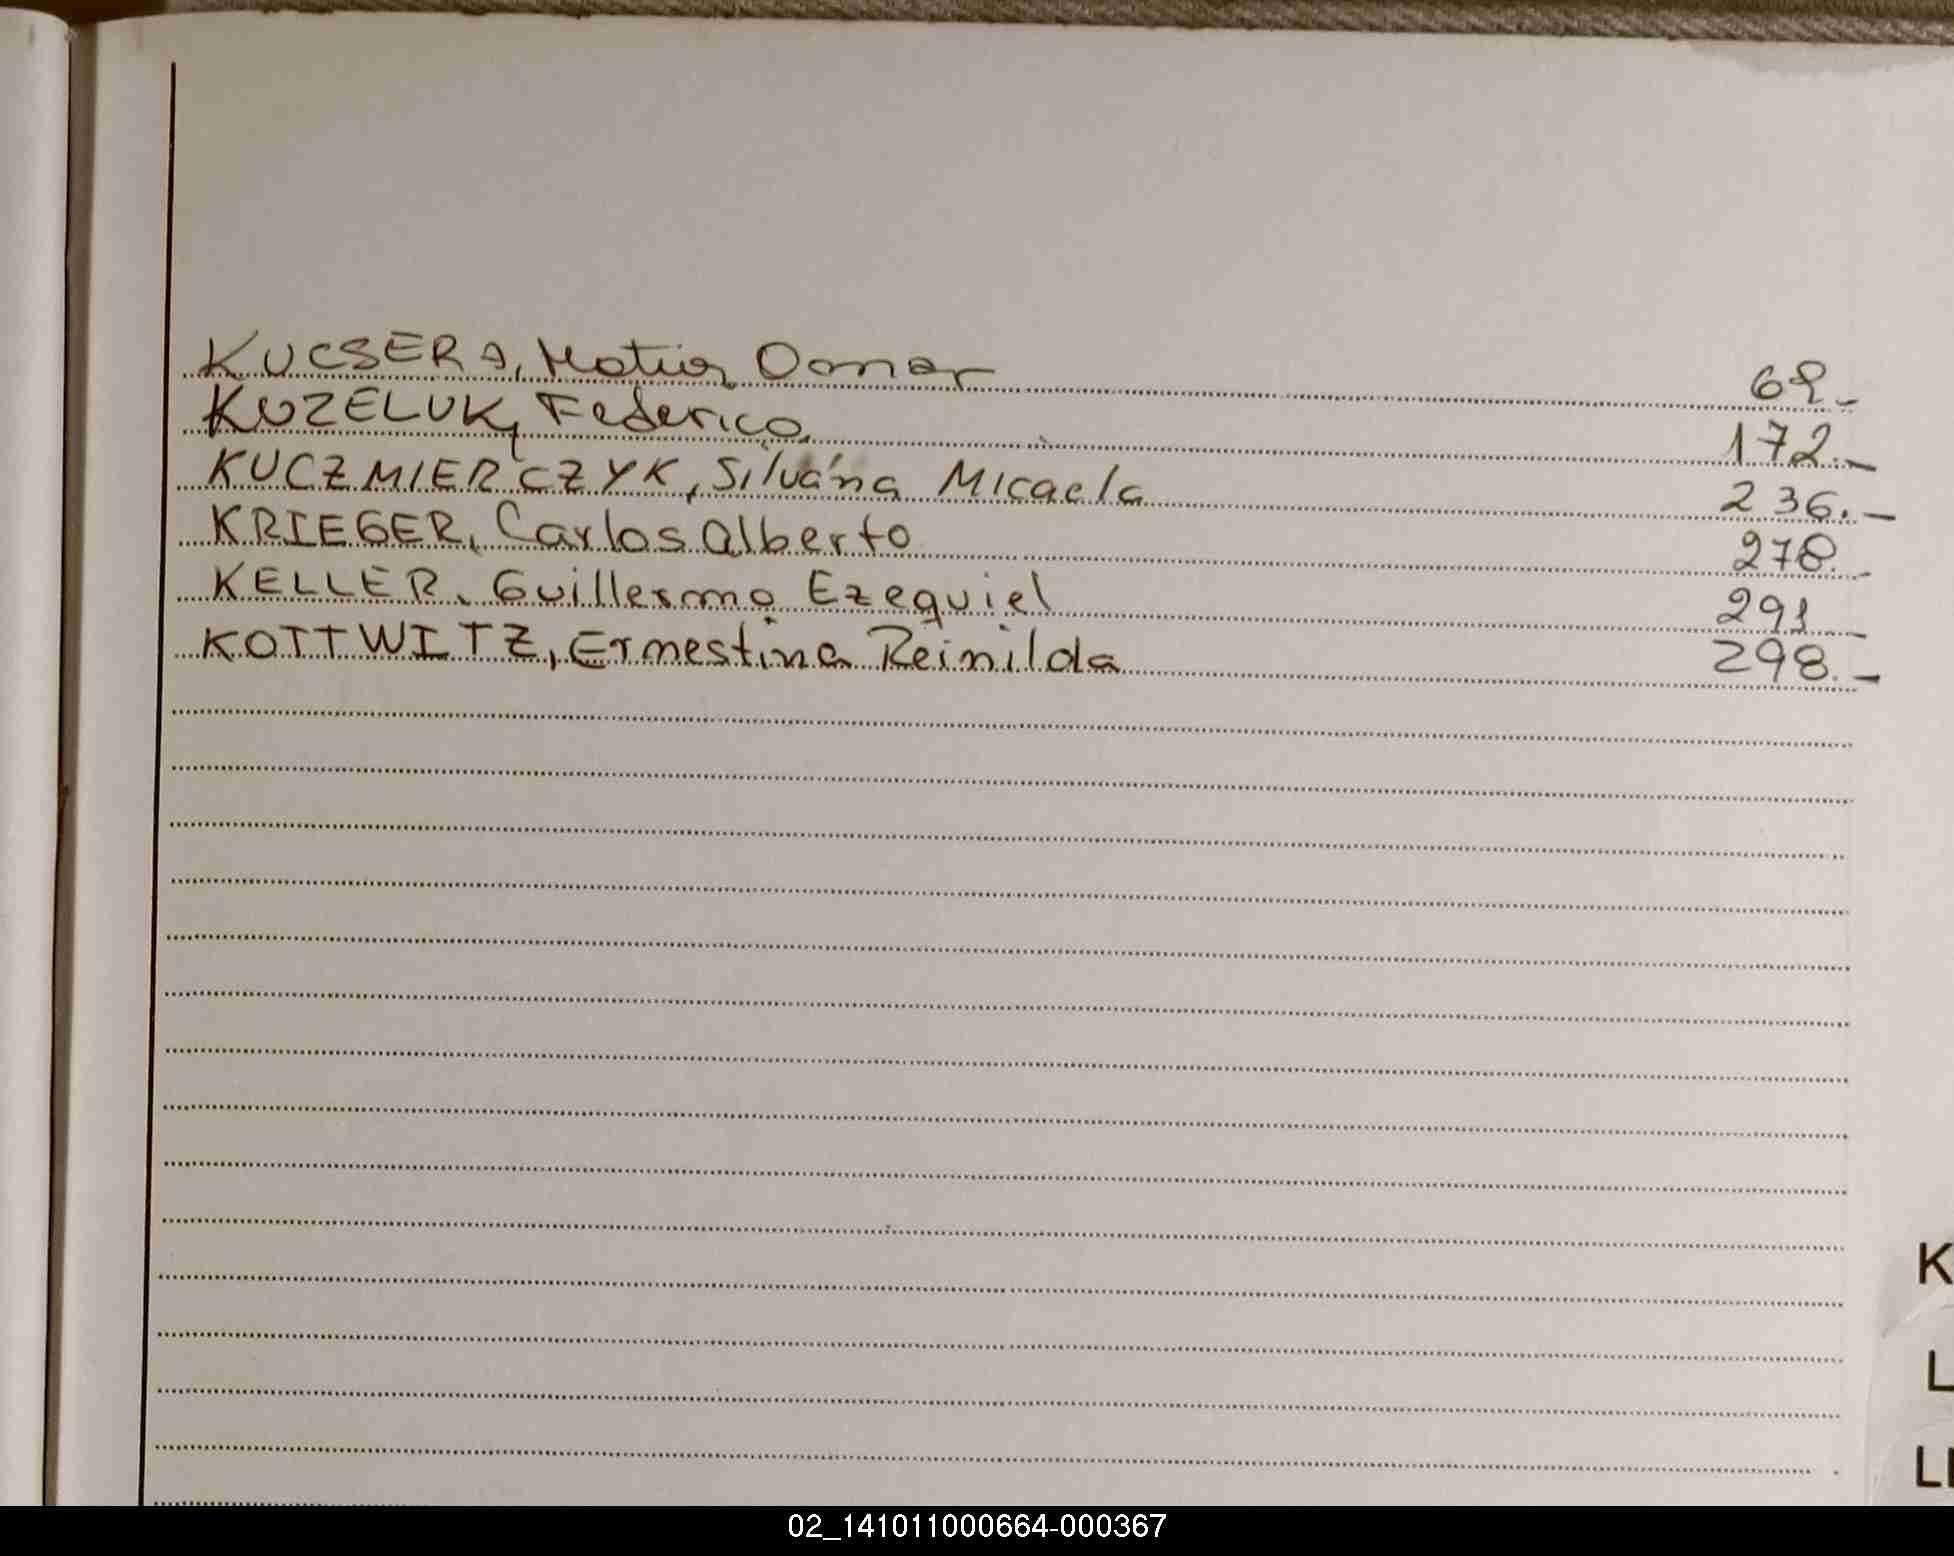 KUCSERA, Matias Omar 69.-
KOZELUK, Federico. 172.-
KUCZMIERCZYK, Silvana Micaela 236.-
KRIEGER, Carlos Alberto 278.-
KELLER, Guillermo Ezequiel 291.-
KOTTWITZ, Ernestina Reinilda 298.-
K
L
02_141011000664-000367